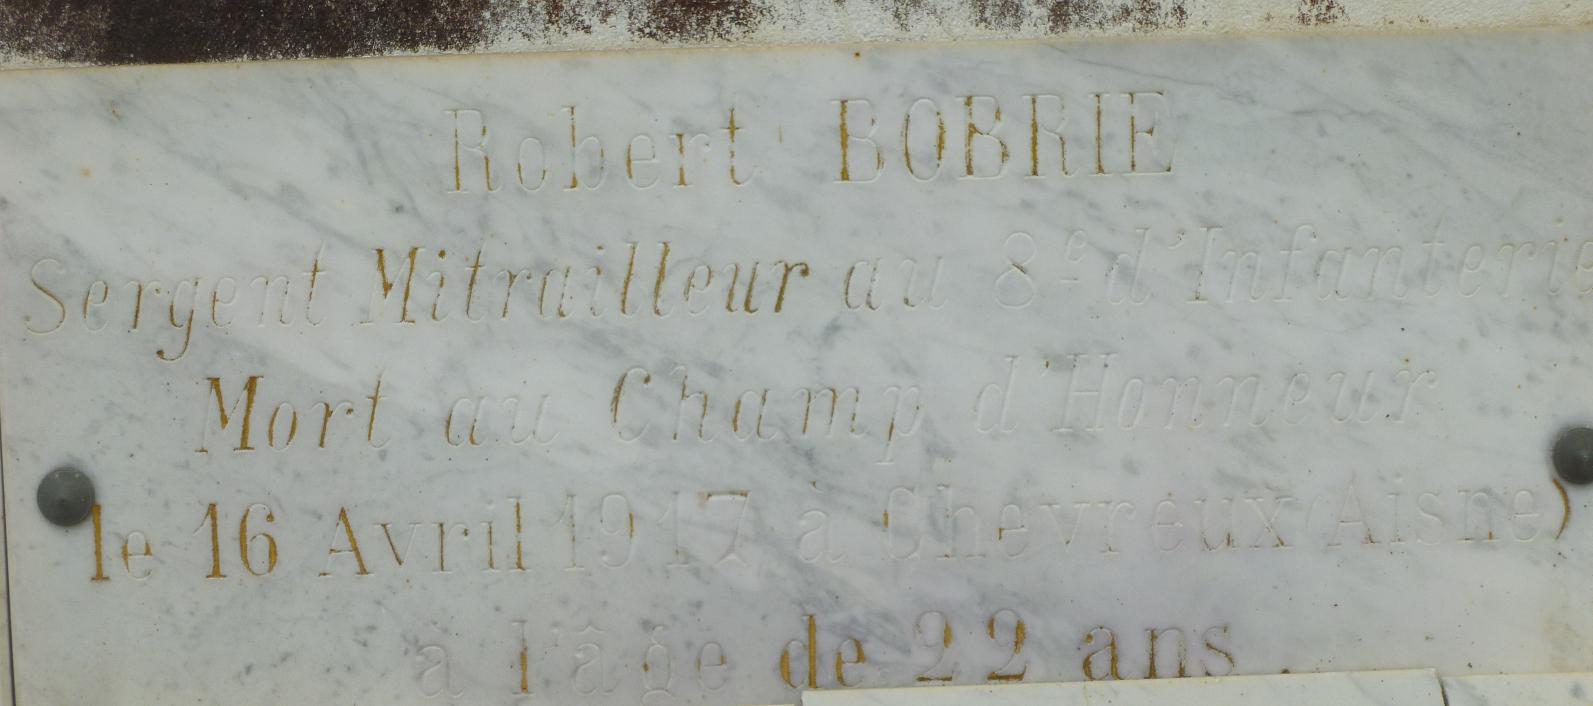 Robert BOBRIE
Sergent Mitrailleur au 8e d'Infanterie
Mort au Champ d'Honneur
le 16 Avril 1917 à Chevreux (Aisne)
à l'âge de 22 ans.